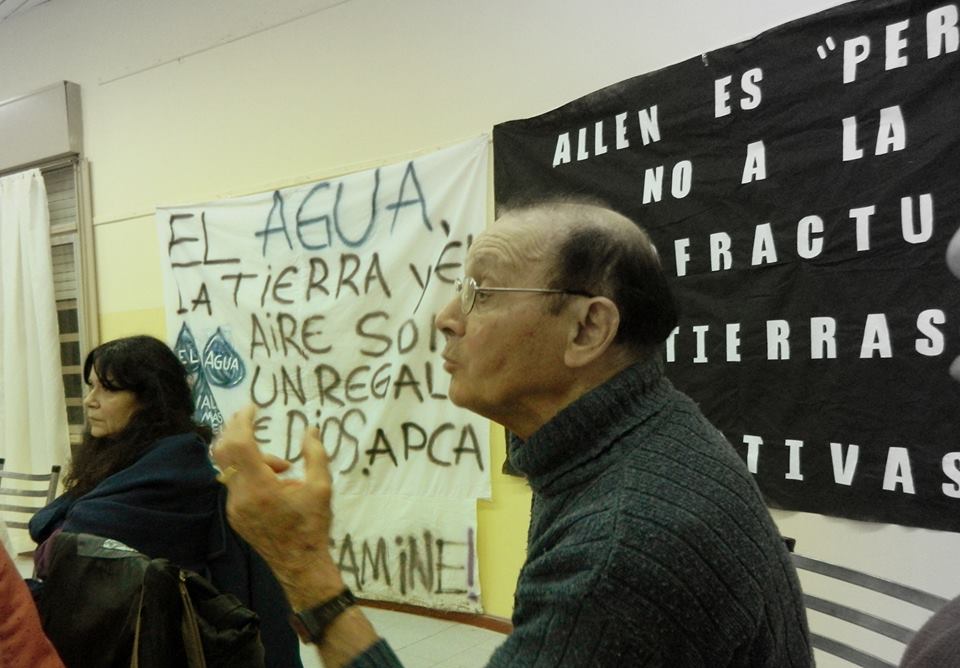 EL AGUA,
LA TIERRA Y EL
AIRE SON
UN REGAL
E DIOS. APCA
EL AGUA
VALE
MAS
TAMINE!
ALLEN ES "PER
NO A LA
FRACTU
TIERRAS
TIVAS